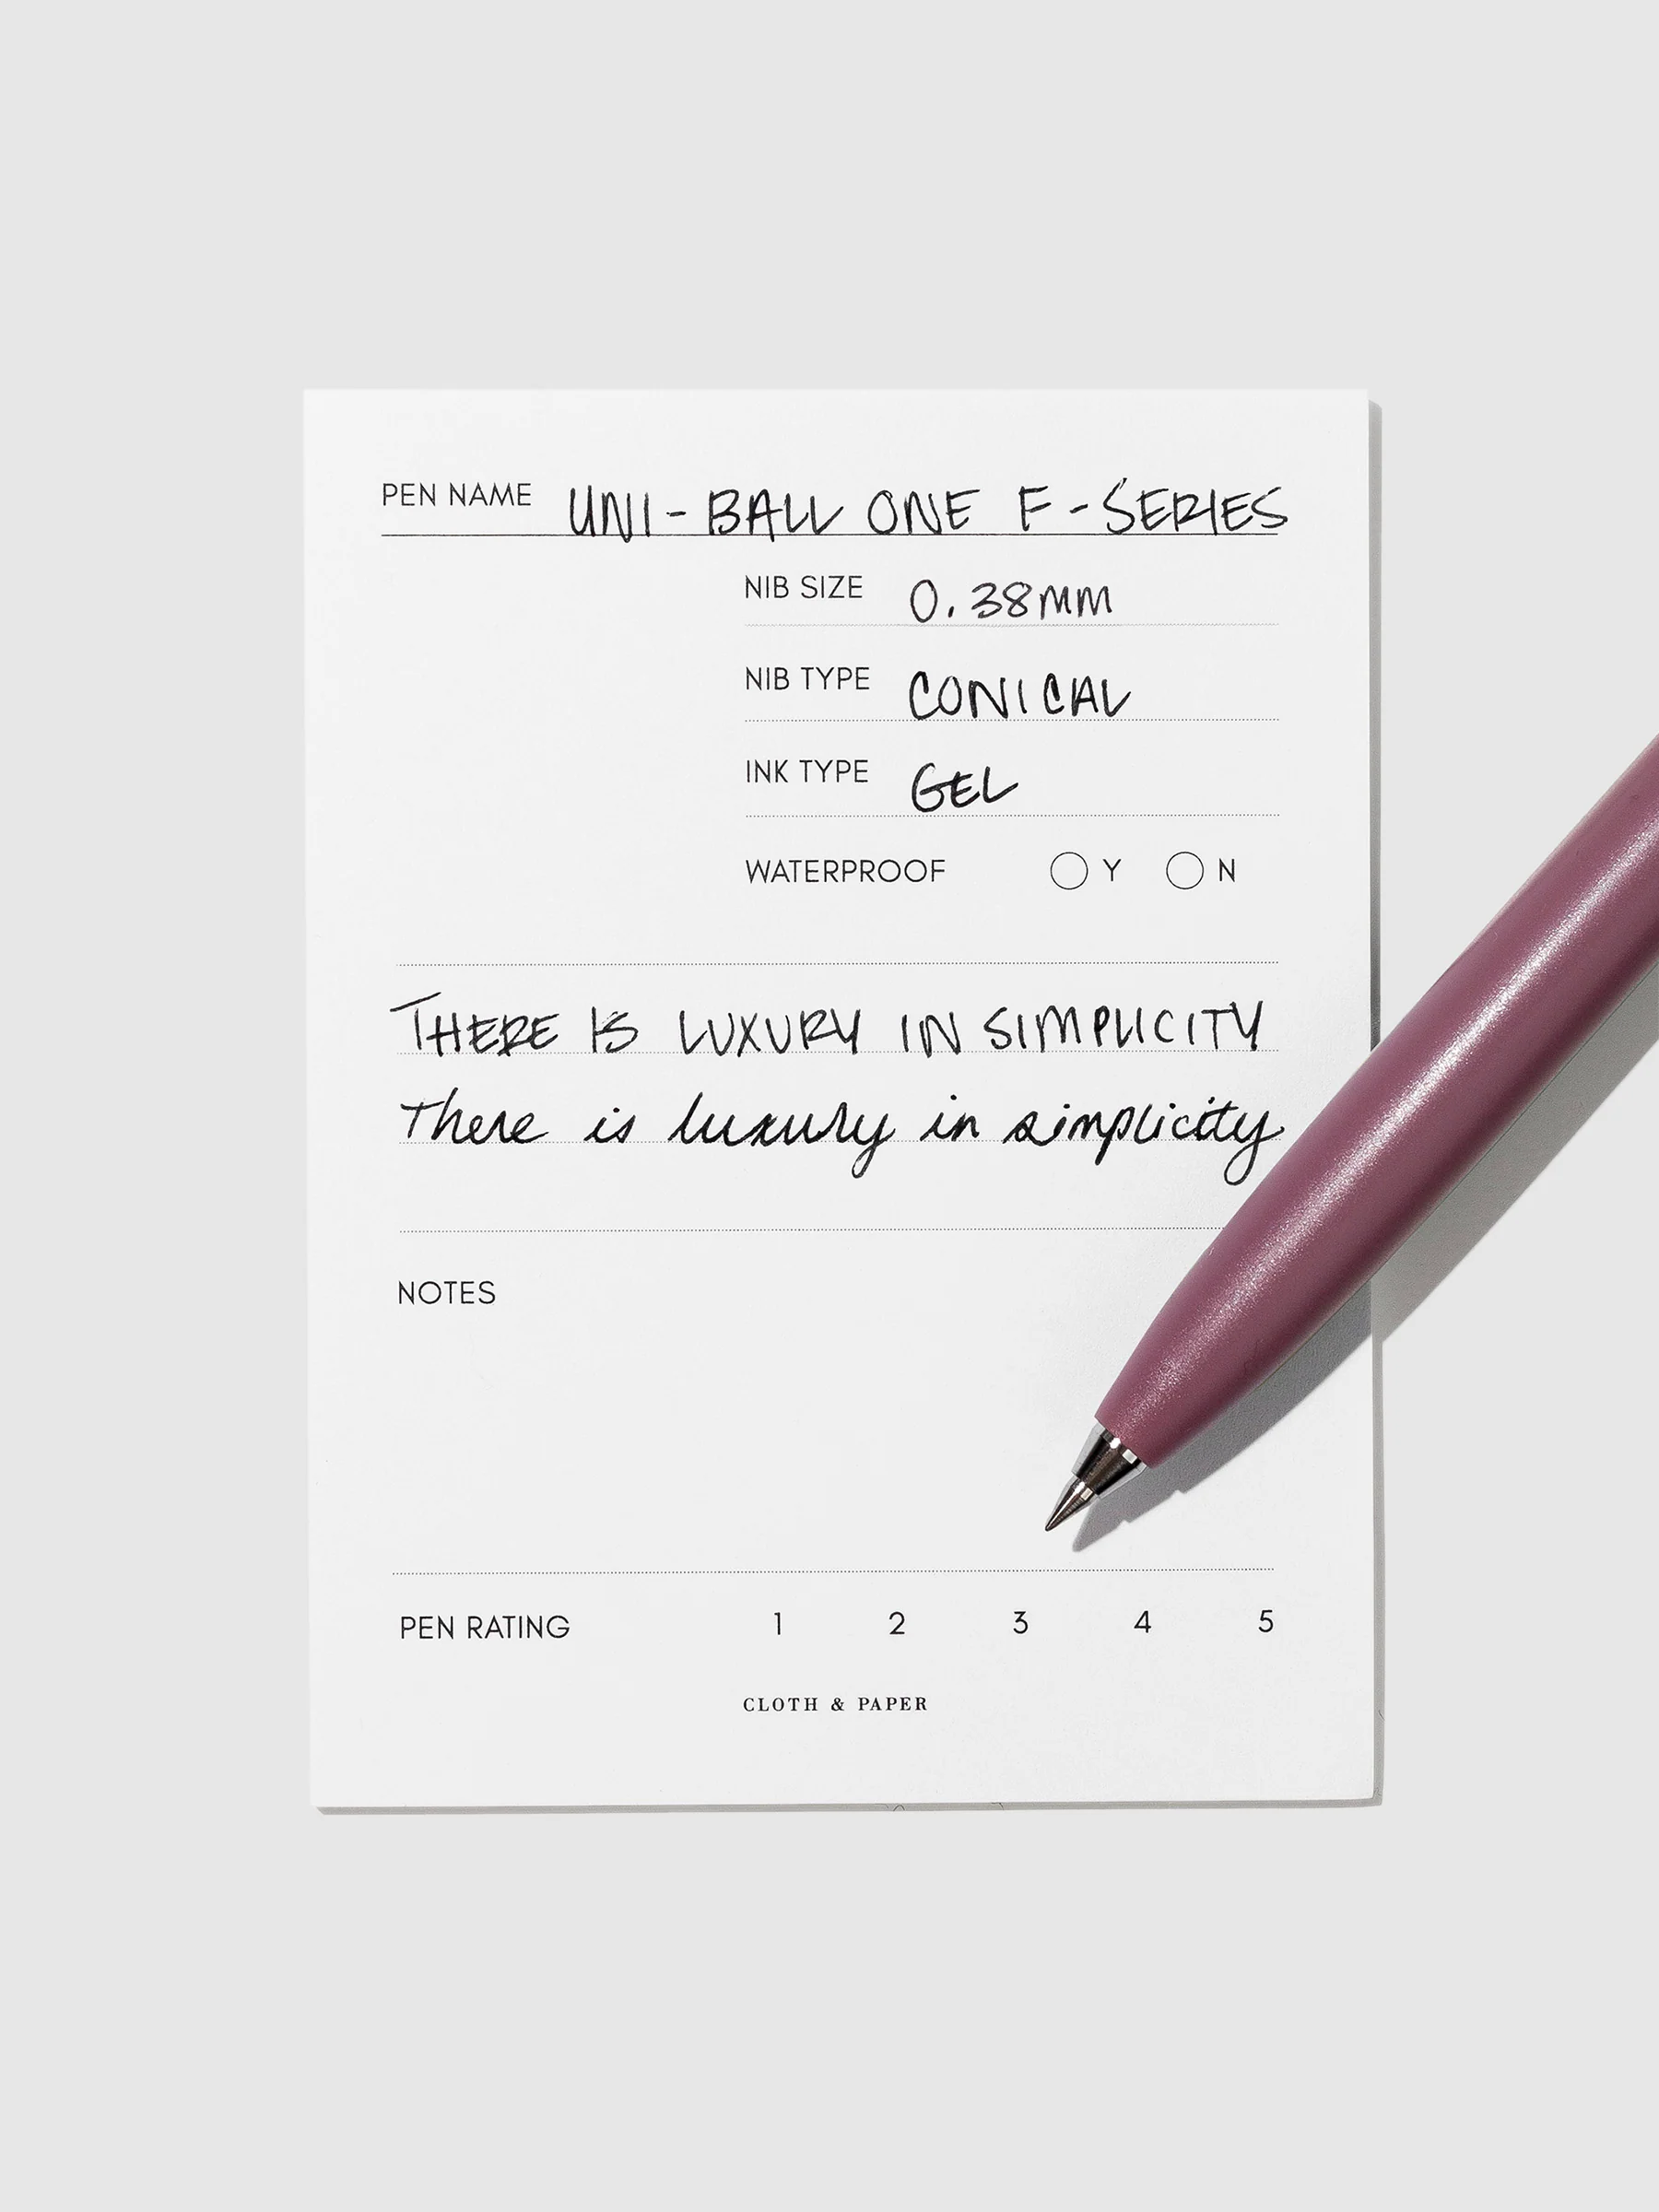 PEN NAME UNI-BALL ONE F-SERIES
NIB SIZE 0.38MM
NIB TYPE CONICAL
INK TYPE GEL
WATERPROOF Y N
THERE IS LUXURY IN SIMPLICITY
There is luxury in simplicity
NOTES
PEN RATING 1 2 3 4 5
CLOTH & PAPER